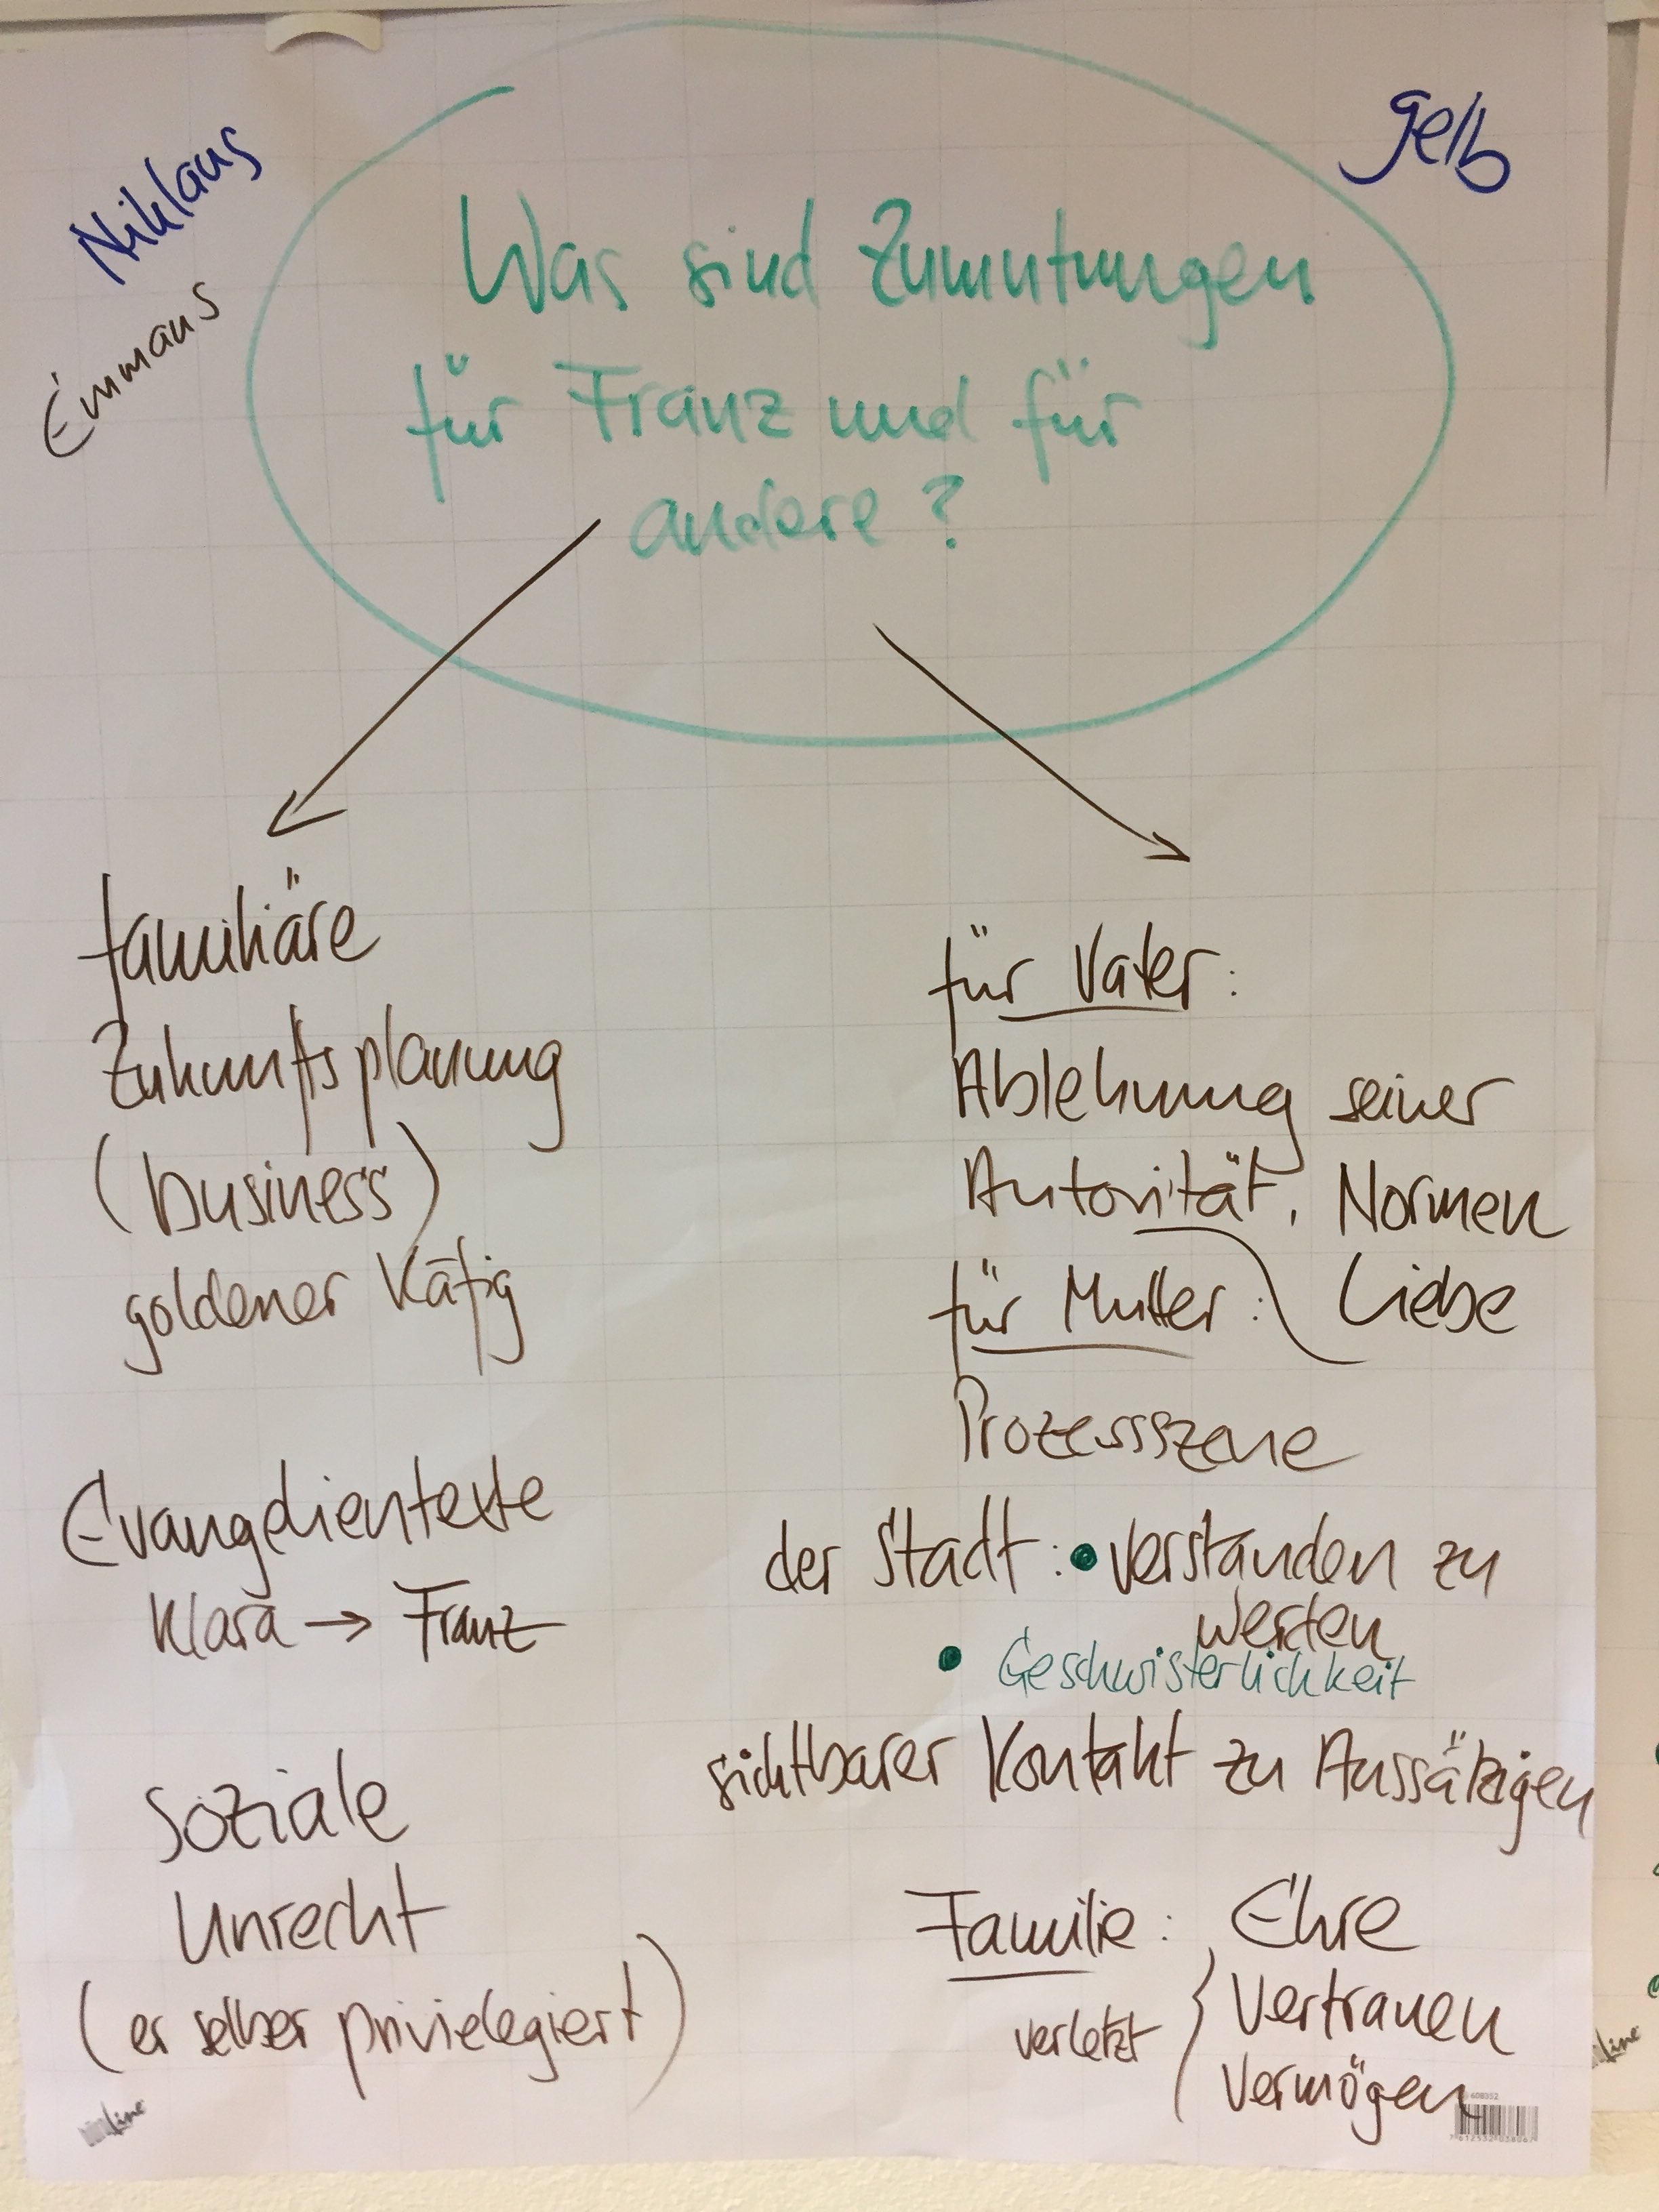 Niklaus
Emmaus
gelb
Was sind Zumutungen
für Franz und für
andere?
familiäre
Zukunftsplanung
(business)
goldener Käfig
Evangelientexte
Klara → Franz
Soziale
Unrecht
(er selber privielegiert)
für Vater:
Ablehnung seiner
Autorität, Normen
Liebe
für Mutter:
Prozessszene
der Stadt: • verstanden zu
werden
• Geschwisterlichkeit
sichtbarer Kontakt zu Aussätzigen
Familie: Ehre
verletzt { Vertrauen
Vermögen
608352